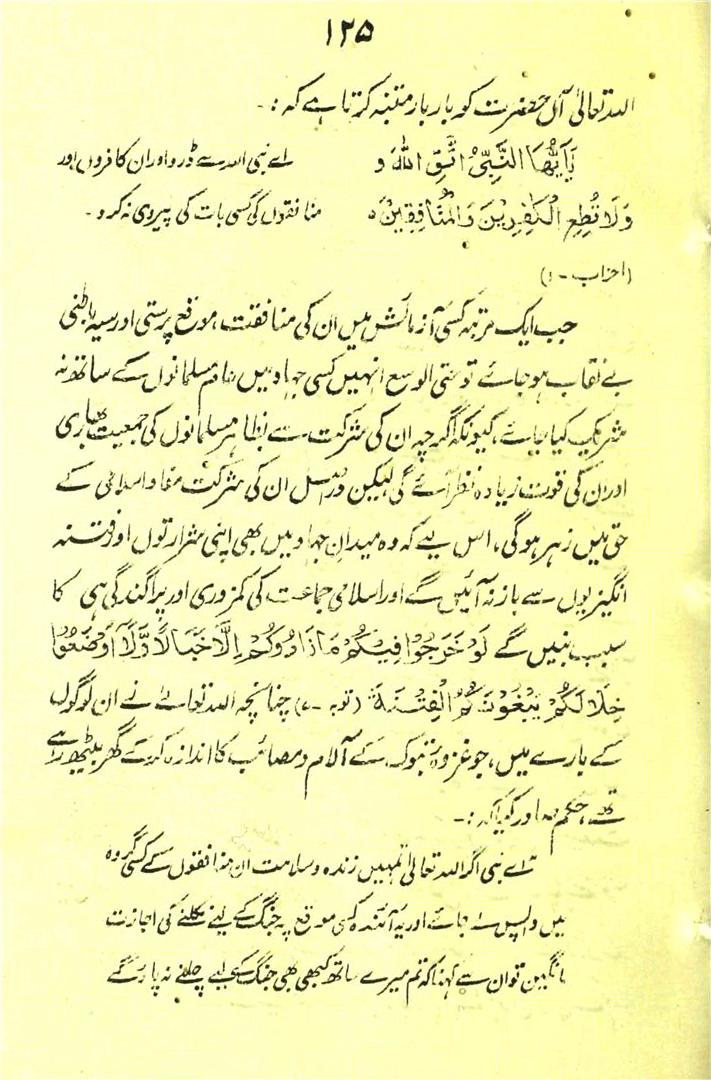 ۱۲۵
اللہ تعالیٰ آں حضرت کو بار بار متنبہ کرتا ہے کہ :۔
يَاَيُّهَا النَّبِيُّ اتَّقِ اللّٰهَ وَ اے نبی اللہ سے ڈرو اور ان کافروں اور
وَلَا تُطِعِ الْكٰفِرِيْنَ وَالْمُنَافِقِيْنَ ہ منافقوں کی کسی بات کی پیروی نہ کرو۔
(احزاب - ۱)
جب ایک مرتبہ کسی آزمائش میں ان کی منافقت، موقع پرستی اور سیہ باطنی
بے نقاب ہو جائے تو حتی الوسع انہیں کسی جہاد میں عام مسلمانوں کے ساتھ نہ
شریک کیا جائے، کیونکہ اگرچہ ان کی شرکت سے بظاہر مسلمانوں کی جمعیت بھاری
اور ان کی قوت زیادہ نظر آئے گی لیکن دراصل ان کی شرکت مفاد اسلامی کے
حق میں زہر ہوگی، اس لیے کہ وہ میدانِ جہاد میں بھی اپنی شرارتوں اور فتنہ
انگیزیوں سے باز نہ آئیں گے اور اسلامی جماعت کی کمزوری اور پراگندگی ہی کا
سبب بنیں گے لَوْ خَرَجُوْا فِيْكُمْ مَا زَادُوْكُمْ اِلَّا خَبَالًا وَّلَا اَوْضَعُوْا
خِلَالَكُمْ يَبْغُوْنَكُمُ الْفِتْنَةَ (توبہ - ۷) چنانچہ اللہ تعالےٰ نے ان لوگوں
کے بارے میں، جو غزوہ تبوک کے آلام و مصائب کا اندازہ کر کے گھر بیٹھ رہے
تھے، حکم
اے نبی اگر اللہ تعالیٰ تمہیں زندہ و سلامت ان منافقوں کے کسی گروہ
میں واپس لے جائے اور یہ آئندہ کسی موقع پہ جنگ کے لیے نکلنے کی اجازت
مانگیں تو ان سے کہنا کہ تم میرے ساتھ کبھی بھی جنگ کے لیے چلنے نہ پاؤ گے